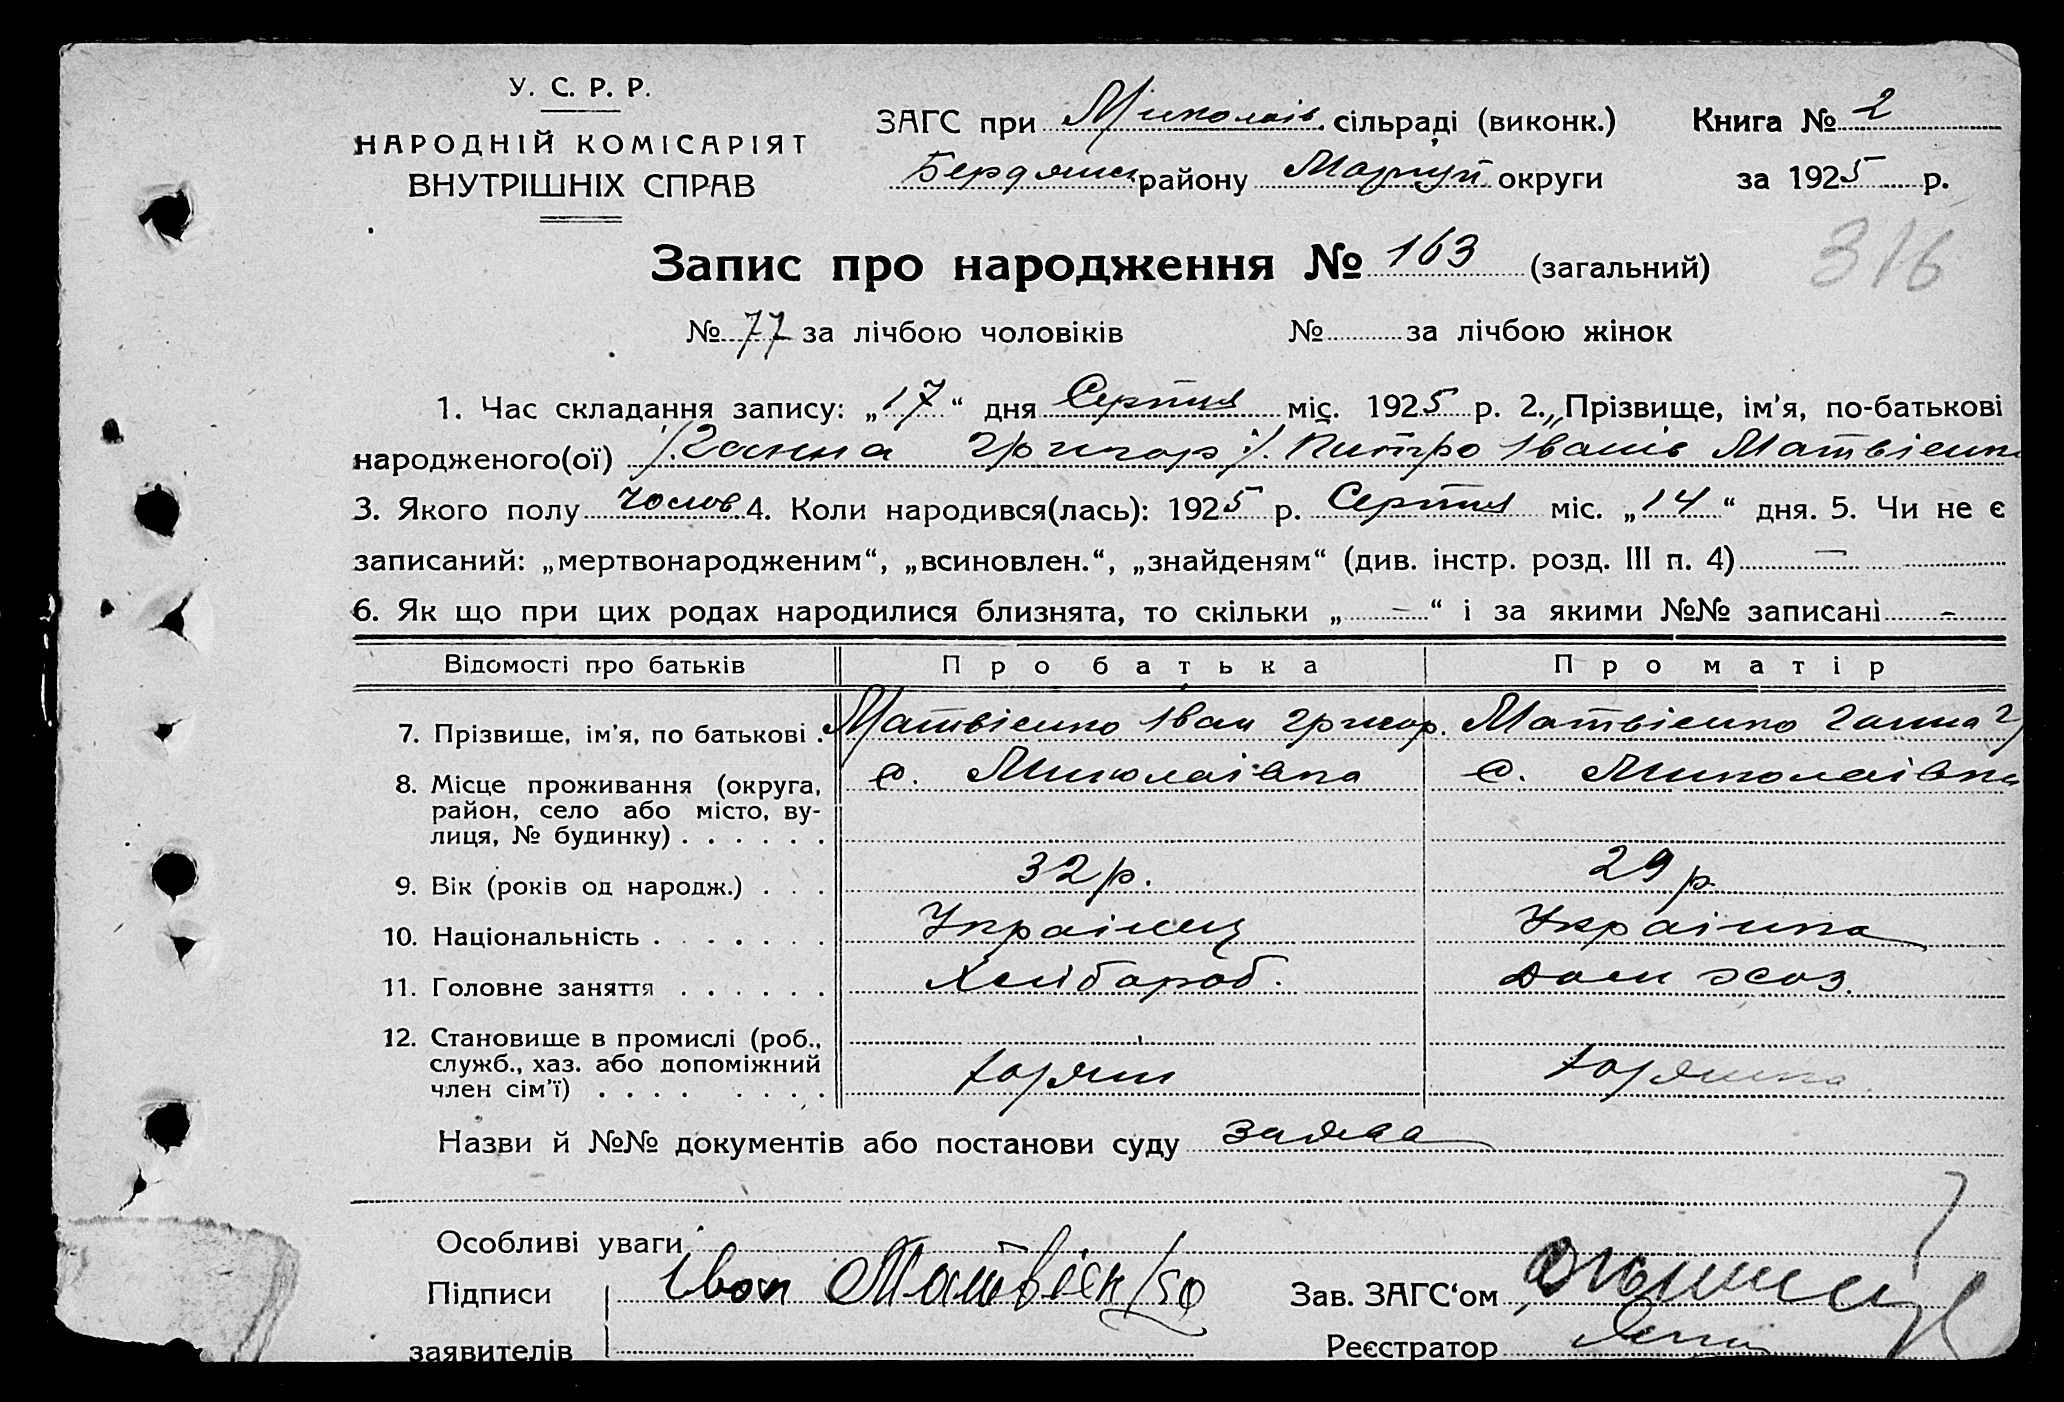 У. С. Р. Р.
НАРОДНІЙ КОМІСАРІЯТ
ВНУТРІШНІХ СПРАВ
ЗАГС при Миколаїв. сільраді (виконк.) Книга № 2
Бердянськ району Маріуп округи за 1925 р.
316
Запис про народження № 163 (загальний)
№ 77 за лічбою чоловіків № за лічбою жінок
1. Час складання запису: „17“ дня Серпня міс. 1925 р. 2. Прізвище, ім'я, по-батькові
народженого(ої) /. Ганна Григор /. Питро Іванів Матвієнко
3. Якого полу Чолов 4. Коли народився(лась): 1925 р. Серпня міс. „14“ дня. 5. Чи не є
записаний: „мертвонародженим“, „всиновлен.“, „знайденям“ (див. інстр. розд. III п. 4) —
6. Як що при цих родах народилися близнята, то скільки „—“ і за якими №№ записані —
Відомості про батьків Про батька Про матір
7. Прізвище, ім'я, по батькові . Матвієнко Іван Григор. Матвієнко Ганна Г
8. Місце проживання (округа, с. Миколаївка с. Миколаївка
район, село або місто, ву-
лиця, № будинку) . . . . . .
9. Вік (років од народж.) . . . 32 р. 29 р.
10. Національність . . . . . . . Українец Українка
11. Головне заняття . . . . . . Хлібароб. Дом хоз.
12. Становище в промислі (роб.,
служб., хаз. або допоміжний
член сім'ї) . . . . . . . .
Назви й №№ документів або постанови суду заява
Особливі уваги
Підписи Іван Матвієнко Зав. ЗАГС'ом
заявителів Реєстратор